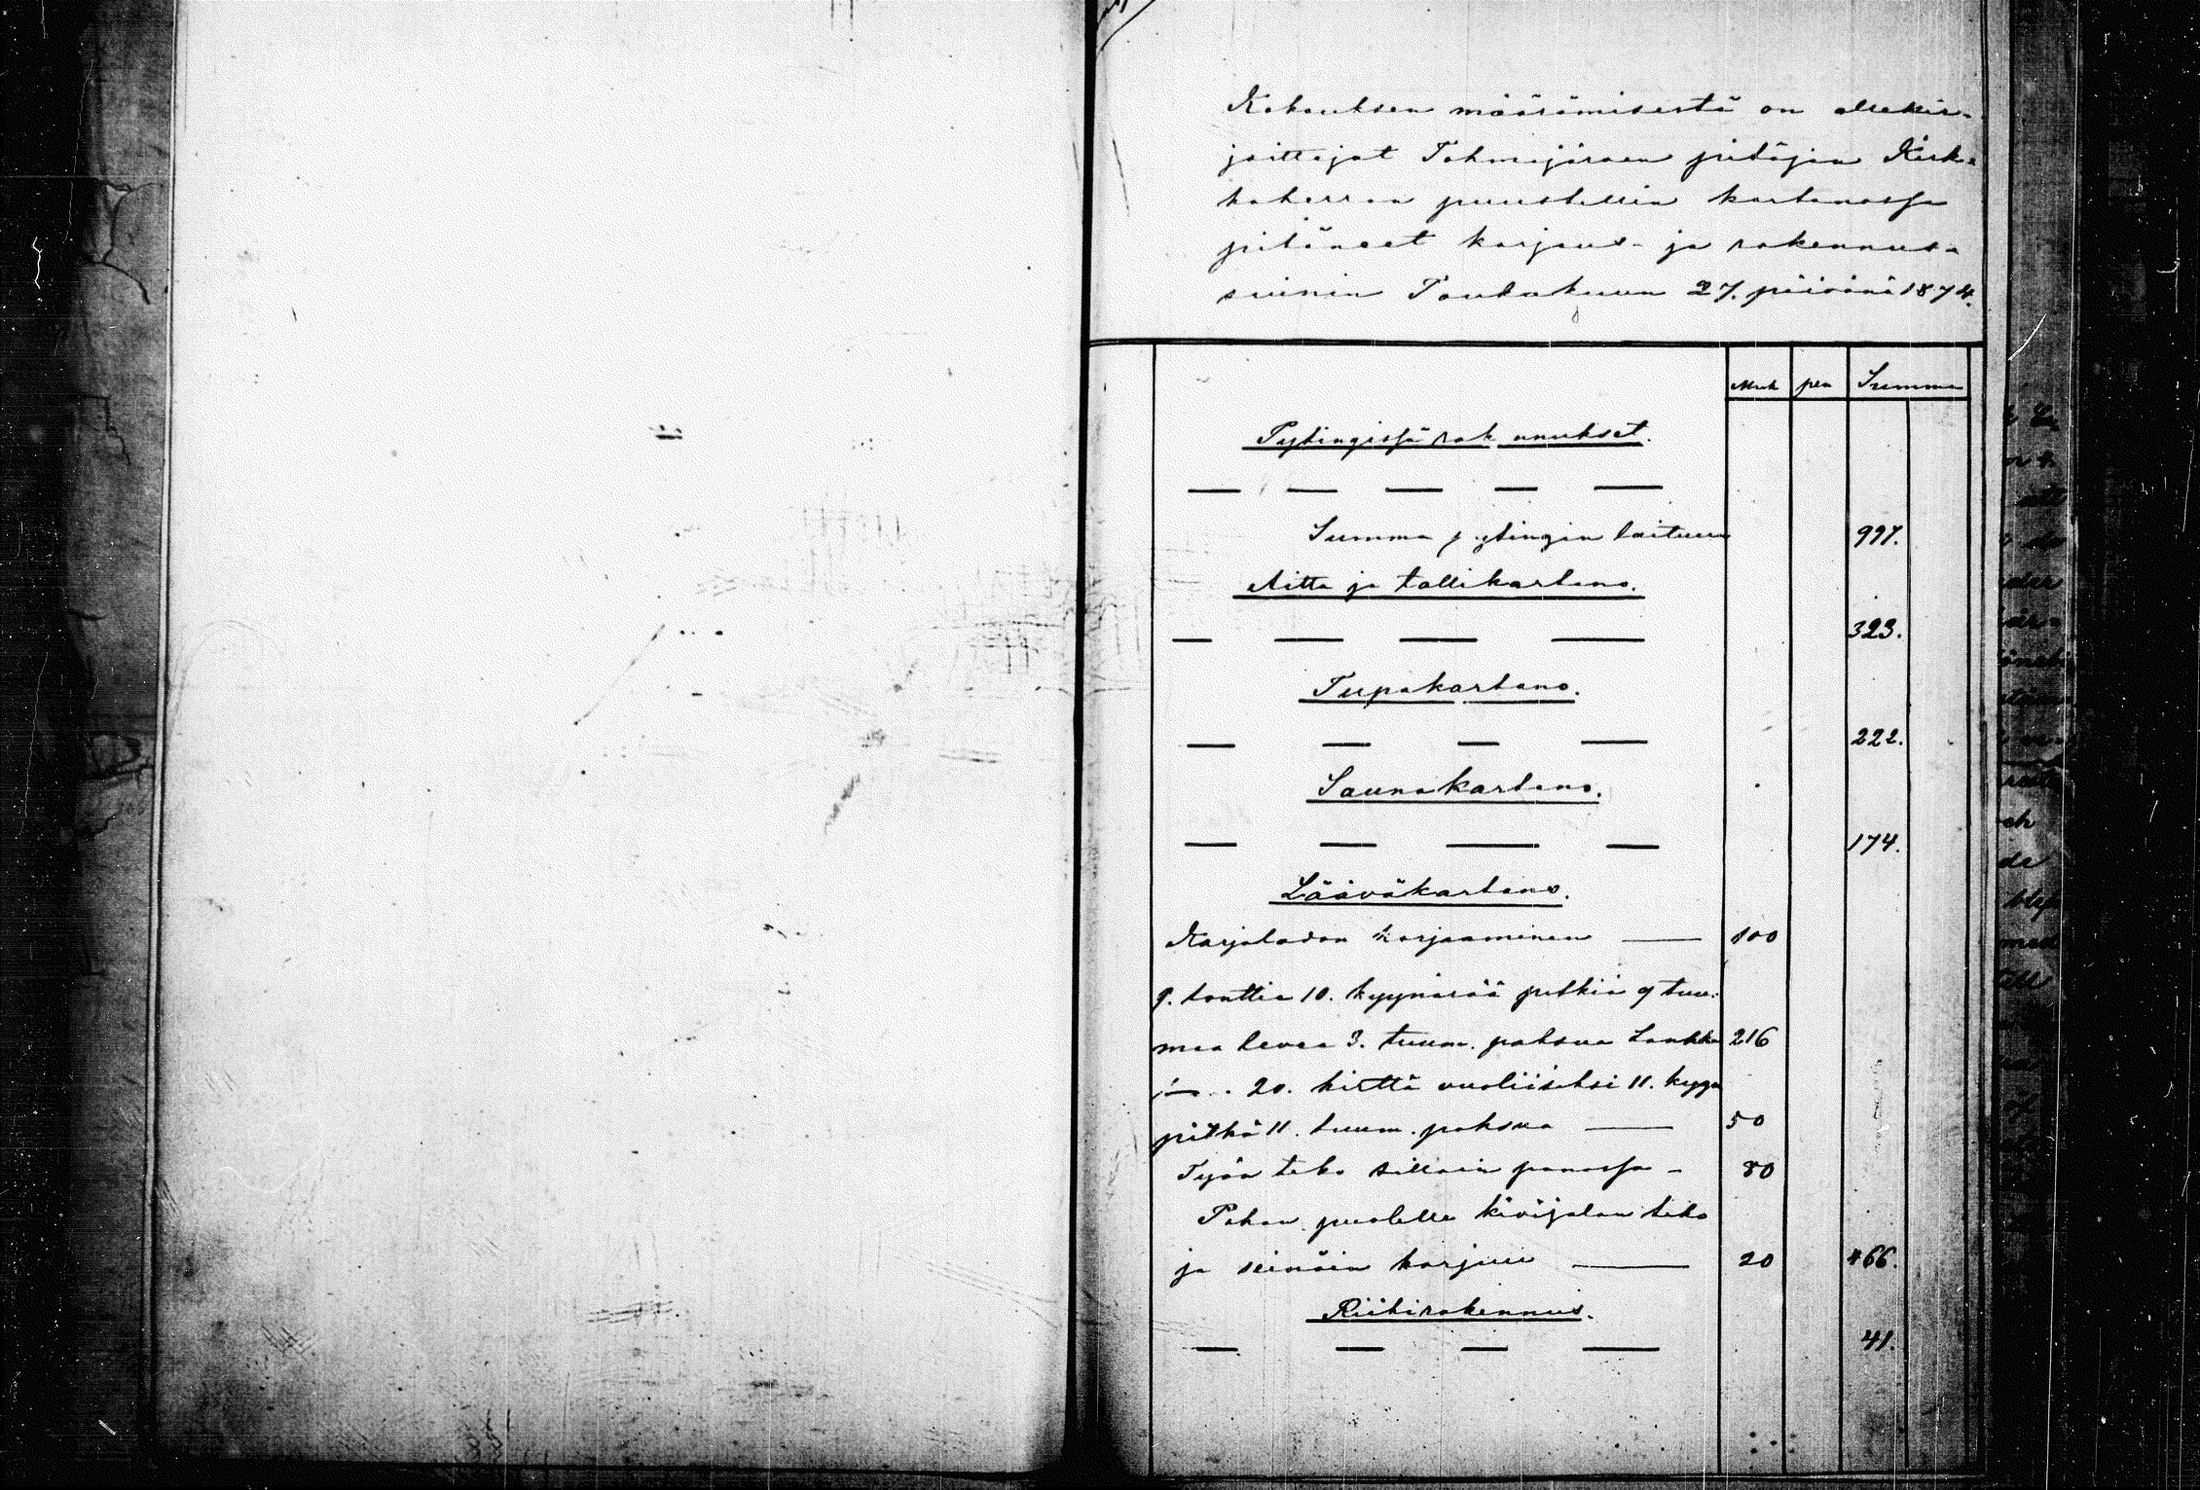 Kokouksen määrämisestä on allekir-
joittajat Tohmajärven pitäjän Kirk-
koherran puustellin kartanossa
pitäneet korjaus- ja rakennus-
suinin Toukokuun 27. päivänä 1874.
Mrk pen Summa
Pytingissä rak nnukset.
Summa pytingin laituun 997.
Aitta ja tallikartano.
323.
Tupakartano.
222.
Saunakartano.
174.
Läävakartano.
Karjaladon korjaaminen 100
9. tonttia 10. kyynärää pitkiä 9 tuu-
maa levea 3. tuum. paksua Lankku 216
20. hirttä vuoliiseksi 11. kyyn
pitkä 11. tuum. paksua 50
Työn teko sillain panossa - 80
Pahan puolelle kivijalan teko
ja seinäin korjuu 20 466.
Riihirakennus.
41.